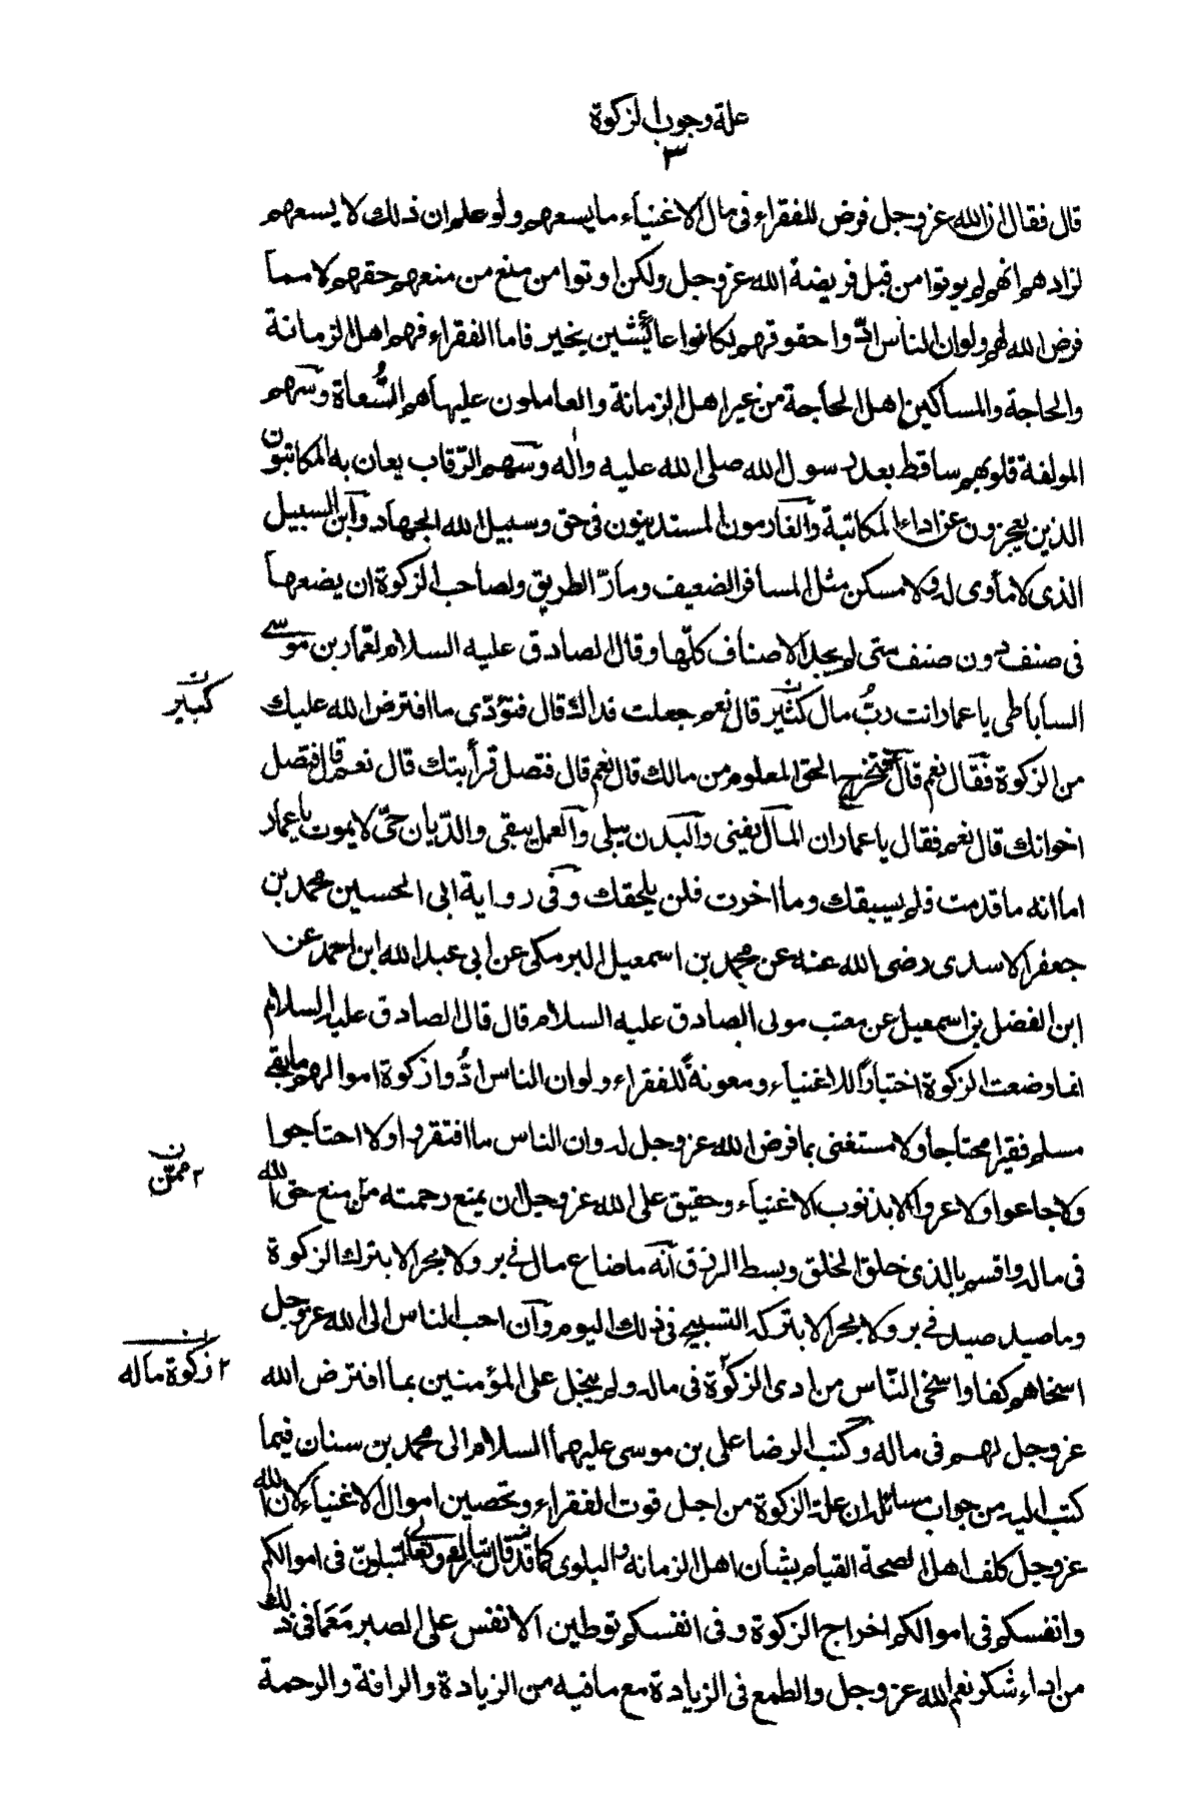 علة وجوب الزكوة
٣
قال فقال ان الله عز وجل فرض للفقراء فى مال الاغنياء ما يسعهم ولو علم ان ذلك لا يسعهم
لزادهم انهم لم يوتوا من قبل فريضة الله عز وجل ولكن اوتوا من منع من منعهم حقهم لا مما
فرض الله لهم ولو ان الناس ادّوا حقوقهم لكانوا عائشين بخير فاما الفقراء فهم اهل الزمانة
والحاجة والمساكين اهل الحاجة من غير اهل الزمانة والعاملون عليها هم السُّعاة وسهم
المولفة قلوبهم ساقط بعد رسول الله صلى الله عليه واله وسهم الرّقاب يعان به المكاتبون
الذين يعجزون عن اداء المكاتبة والغارمون المستدينون فى حق وسبيل الله الجهاد وابن السبيل
الذى لا مأوى له ولا مسكن مثل المسافر الضعيف ومارّ الطريق ولصاحب الزكوة ان يضعها
فى صنف دون صنف متى لم يجد الاصناف كلّها وقال الصادق عليه السلام لعمّار بن موسى
الساباطى يا عمار انت ربُّ مال كثير قال نعم جعلت فداك قال فتؤدّى ما افترض الله عليك
كبير
من الزكوة فقال نعم قال فتخرج الحق المعلوم من مالك قال نعم قال فتصل قرابتك قال نعم قال فتصل
اخوانك قال نعم فقال يا عمار ان المال يفنى والبدن يبلى والعمل يبقى والدّيان حىّ لا يموت يا عمار
اما انه ما قدمت فلم يسبقك وما اخرت فلن يلحقك وفى رواية ابى الحسين محمد بن
جعفر الاسدى رضى الله عنه عن محمد بن اسمعيل البرمكى عن ابى عبد الله ابن احمد عن
ابن الفضل بن اسمعيل عن معتب مولى الصادق عليه السلام قال قال الصادق عليه السلام
انما وضعت الزكوة اختباراً للاغنياء ومعونةً للفقراء ولو ان الناس ادُّوا زكوة اموالهم ما بقى
مسلم فقيرا محتاجا ولا ستغنى بما فرض الله عز وجل له وان الناس ما افتقروا ولا احتاجوا
ولا جاعوا ولا عروا الا بذنوب الاغنياء وحقيق على الله عز وجل ان يمنع رحمته من منع حق الله
٢ ممّن
فى ماله واقسم بالذى خلق الخلق وبسط الرزق انّه ما ضاع مال فى بر ولا بحر الا بترك الزكوة
وما صيد صيد فى بر ولا بحر الا بتركه التسبيح فى ذلك اليوم وان احب الناس الى الله عز وجل
اسخاهم كفا واسخى النّاس من ادى الزكوة فى ماله ولم يبخل على المؤمنين بما افترض الله
٢ زكوة ماله
عز وجل لهم فى ماله وكتب الرضا على بن موسى عليهما السلام الى محمد بن سنان فيما
كتب اليه من جواب مسائله ان علة الزكوة من اجل قوت الفقراء وتحصين اموال الاغنياء لان الله
عز وجل كلف اهل الصحة القيام بشأن اهل الزمانة والبلوى كما قال تبارك وتعالى لتبلونّ فى اموالكم
وانفسكم فى اموالكم اخراج الزكوة وفى انفسكم توطين الانفس على الصبر مَعَ مَا فى ذلك
من اداء شكر نعم الله عز وجل والطمع فى الزيادة مع ما فيه من الزيادة والرافة والرحمة